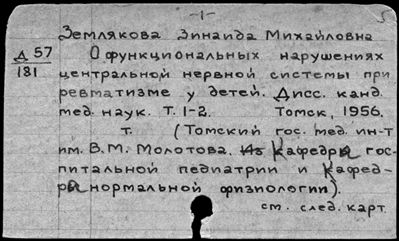 -1-
Землякова Зинаида Михайловна
Д 57
181
О функциональных нарушениях
центральной нервной системы при
ревматизме у детей. Дисс. канд.
мед. наук. Т. 1-2. Томск, 1956.
т. (Томский гос. мед. ин-т
им. В.М. Молотова. Из Кафедры гос-
питальной педиатрии и Кафед-
ры нормальной физиологии).
см. след. карт